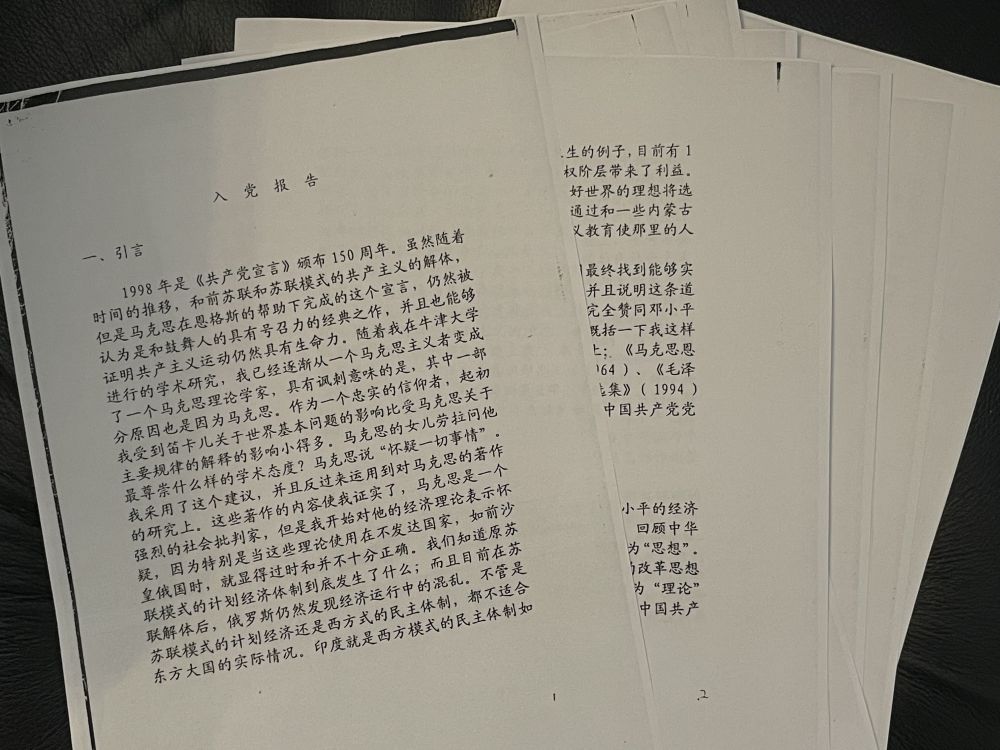 入 党 报 告
一、引言
1998 年是《共产党宣言》颁布 150 周年。虽然随着
时间的推移，和前苏联和苏联模式的共产主义的解体，
但是马克思在恩格斯的帮助下完成的这个宣言，仍然被
认为是和鼓舞人的具有号召力的经典之作，并且也能够
证明共产主义运动仍然具有生命力。随着我在牛津大学
进行的学术研究，我已经逐渐从一个马克思主义者变成
了一个马克思理论学家，具有讽刺意味的是，其中一部
分原因也是因为马克思。作为一个忠实的信仰者，起初
我受到笛卡儿关于世界基本问题的影响比受马克思关于
主要规律的解释的影响小得多。马克思的女儿劳拉问他
最尊崇什么样的学术态度？马克思说“怀疑一切事情”。
我采用了这个建议，并且反过来运用到对马克思的著作
的研究上。这些著作的内容使我证实了，马克思是一个
强烈的社会批判家，但是我开始对他的经济理论表示怀
疑，因为特别是当这些理论使用在不发达国家，如前沙
皇俄国时，就显得过时和并不十分正确。我们知道原苏
联模式的计划经济体制到底发生了什么；而且目前在苏
联解体后，俄罗斯仍然发现经济运行中的混乱。不管是
苏联模式的计划经济还是西方式的民主体制，都不适合
东方大国的实际情况。印度就是西方模式的民主体制如
1
生的例子，目前有 1
权阶层带来了利益。
好世界的理想将选
通过和一些内蒙古
义教育使那里的人
最终找到能够实
并且说明这条道
完全赞同邓小平
概括一下我这样
上；《马克思恩
964）、《毛泽
选集》（1994）
中国共产党党
小平的经济
回顾中华
为“思想”。
的改革思想
为“理论”
中国共产
2